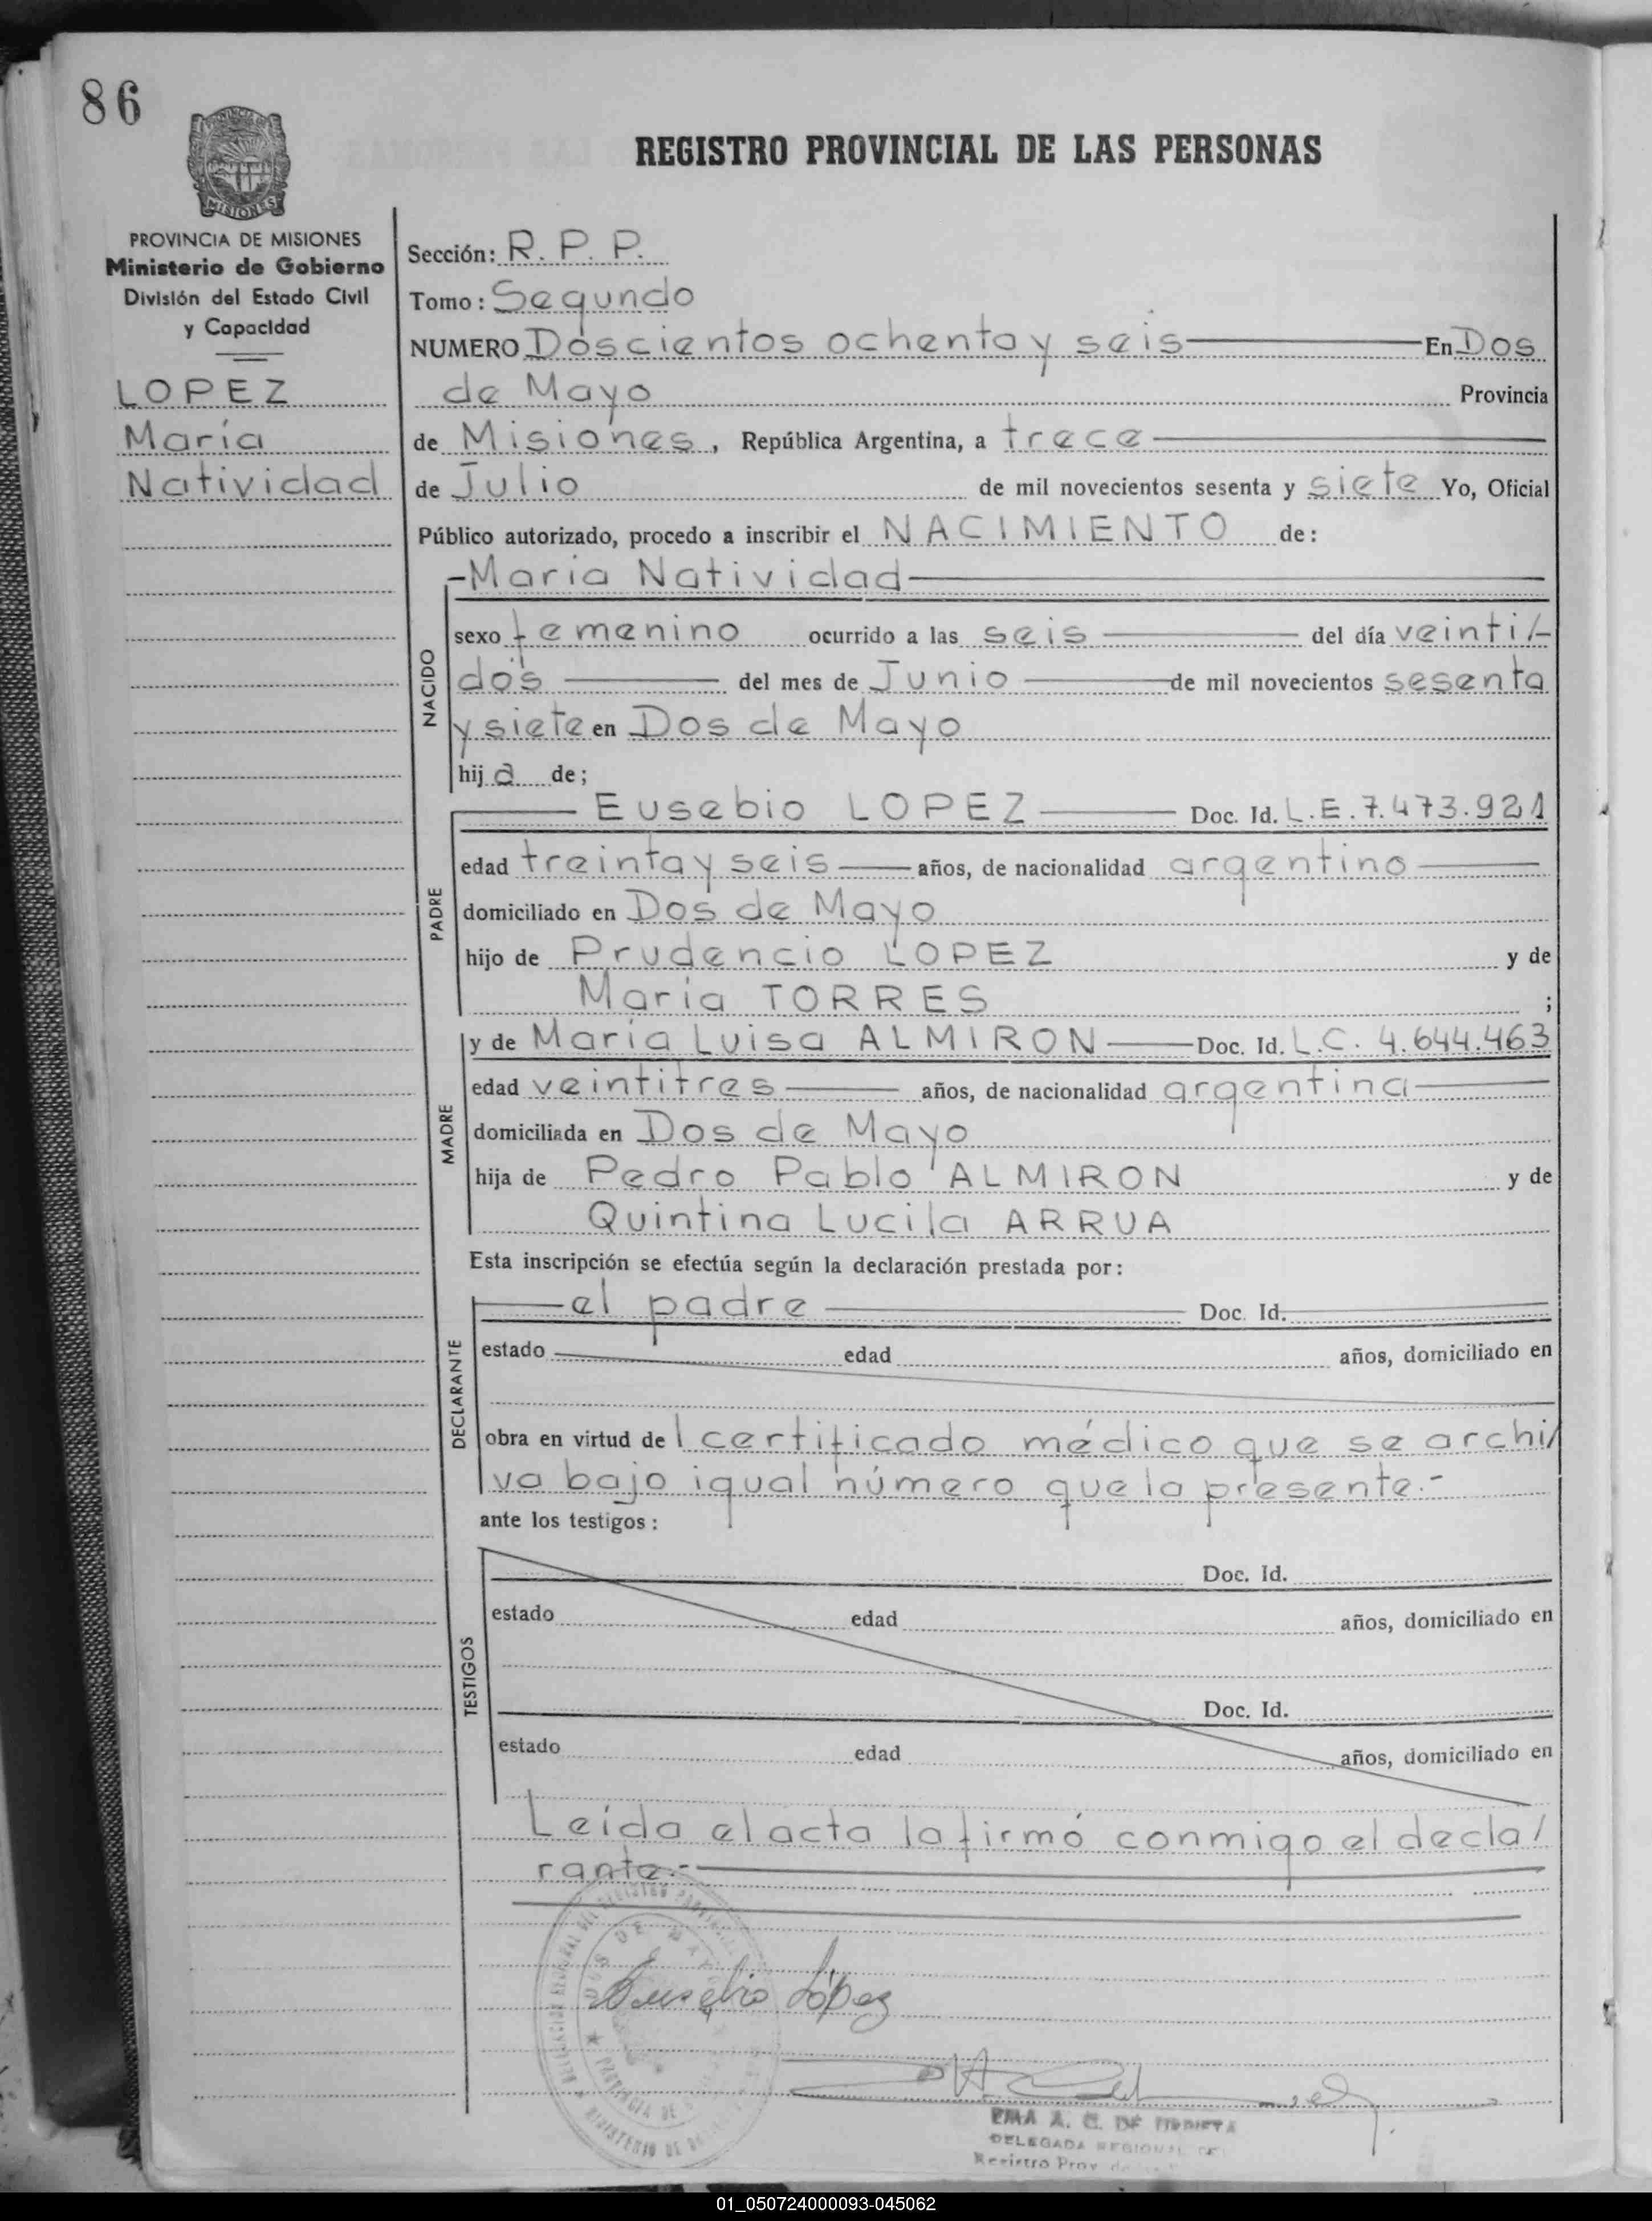 86
REGISTRO PROVINCIAL DE LAS PERSONAS
MISIONES
PROVINCIA DE MISIONES
Ministerio de Gobierno
División del Estado Civil
y Capacidad
LOPEZ
María
Natividad
Sección: R. P. P.
Tomo: Segundo
NUMERO Doscientos ochenta y seis En Dos
de Mayo Provincia
de Misiones, República Argentina, a trece
de Julio de mil novecientos sesenta y siete Yo, Oficial
Público autorizado, procedo a inscribir el NACIMIENTO de:
-María Natividad
NACIDO
sexo femenino ocurrido a las seis del día veinti/-
dós del mes de Junio de mil novecientos sesenta
y siete en Dos de Mayo
hija de;
PADRE
Eusebio LOPEZ Doc. Id. L.E. 7.473.921
edad treinta y seis años, de nacionalidad argentino
domiciliado en Dos de Mayo
hijo de Prudencio LOPEZ y de
María TORRES ;
MADRE
y de María Luisa ALMIRON Doc. Id. L.C. 4.644.463
edad veintitres años, de nacionalidad argentina
domiciliada en Dos de Mayo
hija de Pedro Pablo ALMIRON y de
Quintina Lucila ARRUA
Esta inscripción se efectúa según la declaración prestada por:
DECLARANTE
el padre Doc. Id.
estado edad años, domiciliado en
obra en virtud del certificado médico que se archi/
va bajo igual número que la presente.-
ante los testigos:
TESTIGOS
Doc. Id.
estado edad años, domiciliado en
Doc. Id.
estado edad años, domiciliado en
Leída el acta la firmó conmigo el decla/
rante.-
DOS DE MAYO
PROVINCIA DE
MINISTERIO DE
Eusebio López
A. C. DE
DELEGADA REGIONAL DEL
Registro Prov. de
01_050724000093-045062